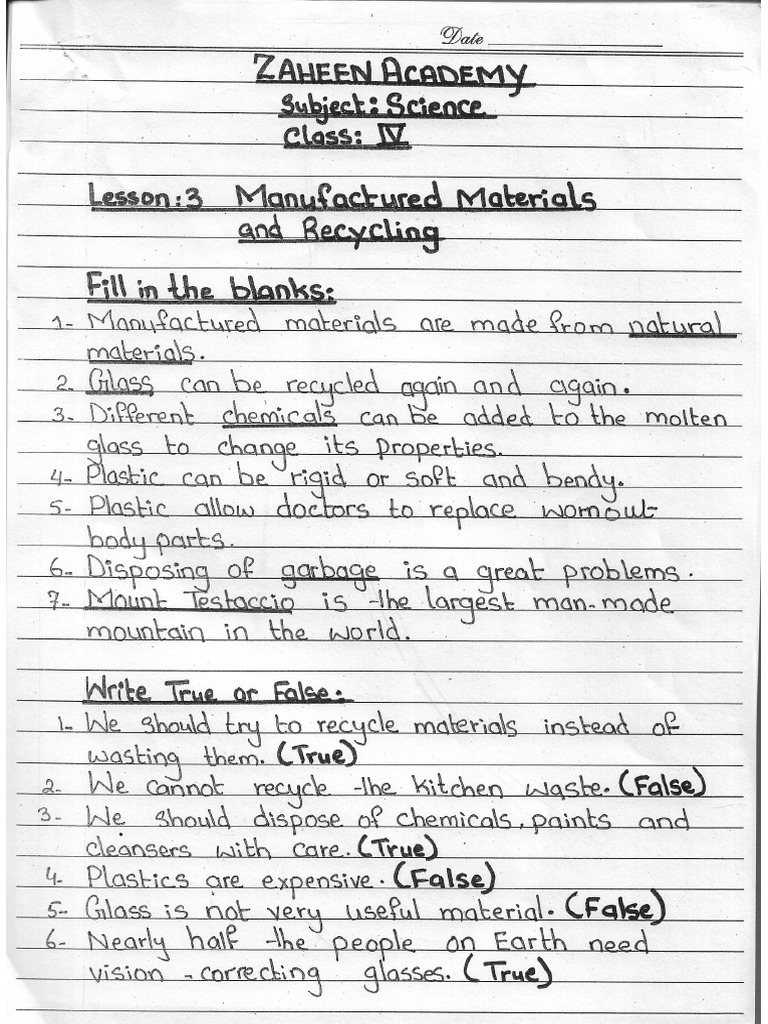 Date
ZAHEEN ACADEMY
Subject: Science
Class: IV
Lesson: 3 Manufactured Materials
and Recycling
Fill in the blanks:
1- Manufactured materials are made from natural
materials.
2- Glass can be recycled again and again.
3- Different chemicals can be added to the molten
glass to change its properties.
4- Plastic can be rigid or soft and bendy.
5- Plastic allow doctors to replace wornout
body parts.
6- Disposing of garbage is a great problems.
7- Mount Testaccio is the largest man-made
mountain in the world.
Write True or False:
1- We should try to recycle materials instead of
wasting them. (True)
2- We cannot recycle the kitchen waste. (False)
3- We should dispose of chemicals, paints and
cleansers with care. (True)
4- Plastics are expensive. (False)
5- Glass is not very useful material. (False)
6- Nearly half the people on Earth need
vision-correcting glasses. (True)